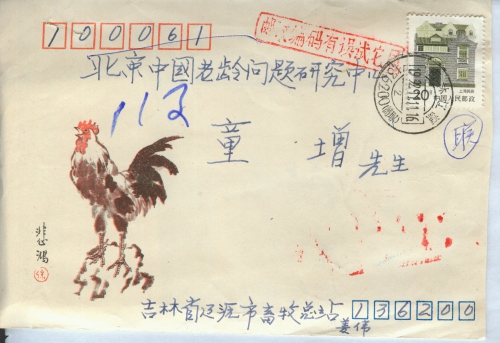 100061
邮政编码有误试它
北京中国老龄问题研究中心
113
童 增 先生
上海民居
20
中国人民邮政
悲鸿
吉林省辽源市畜牧总站 136200
姜伟